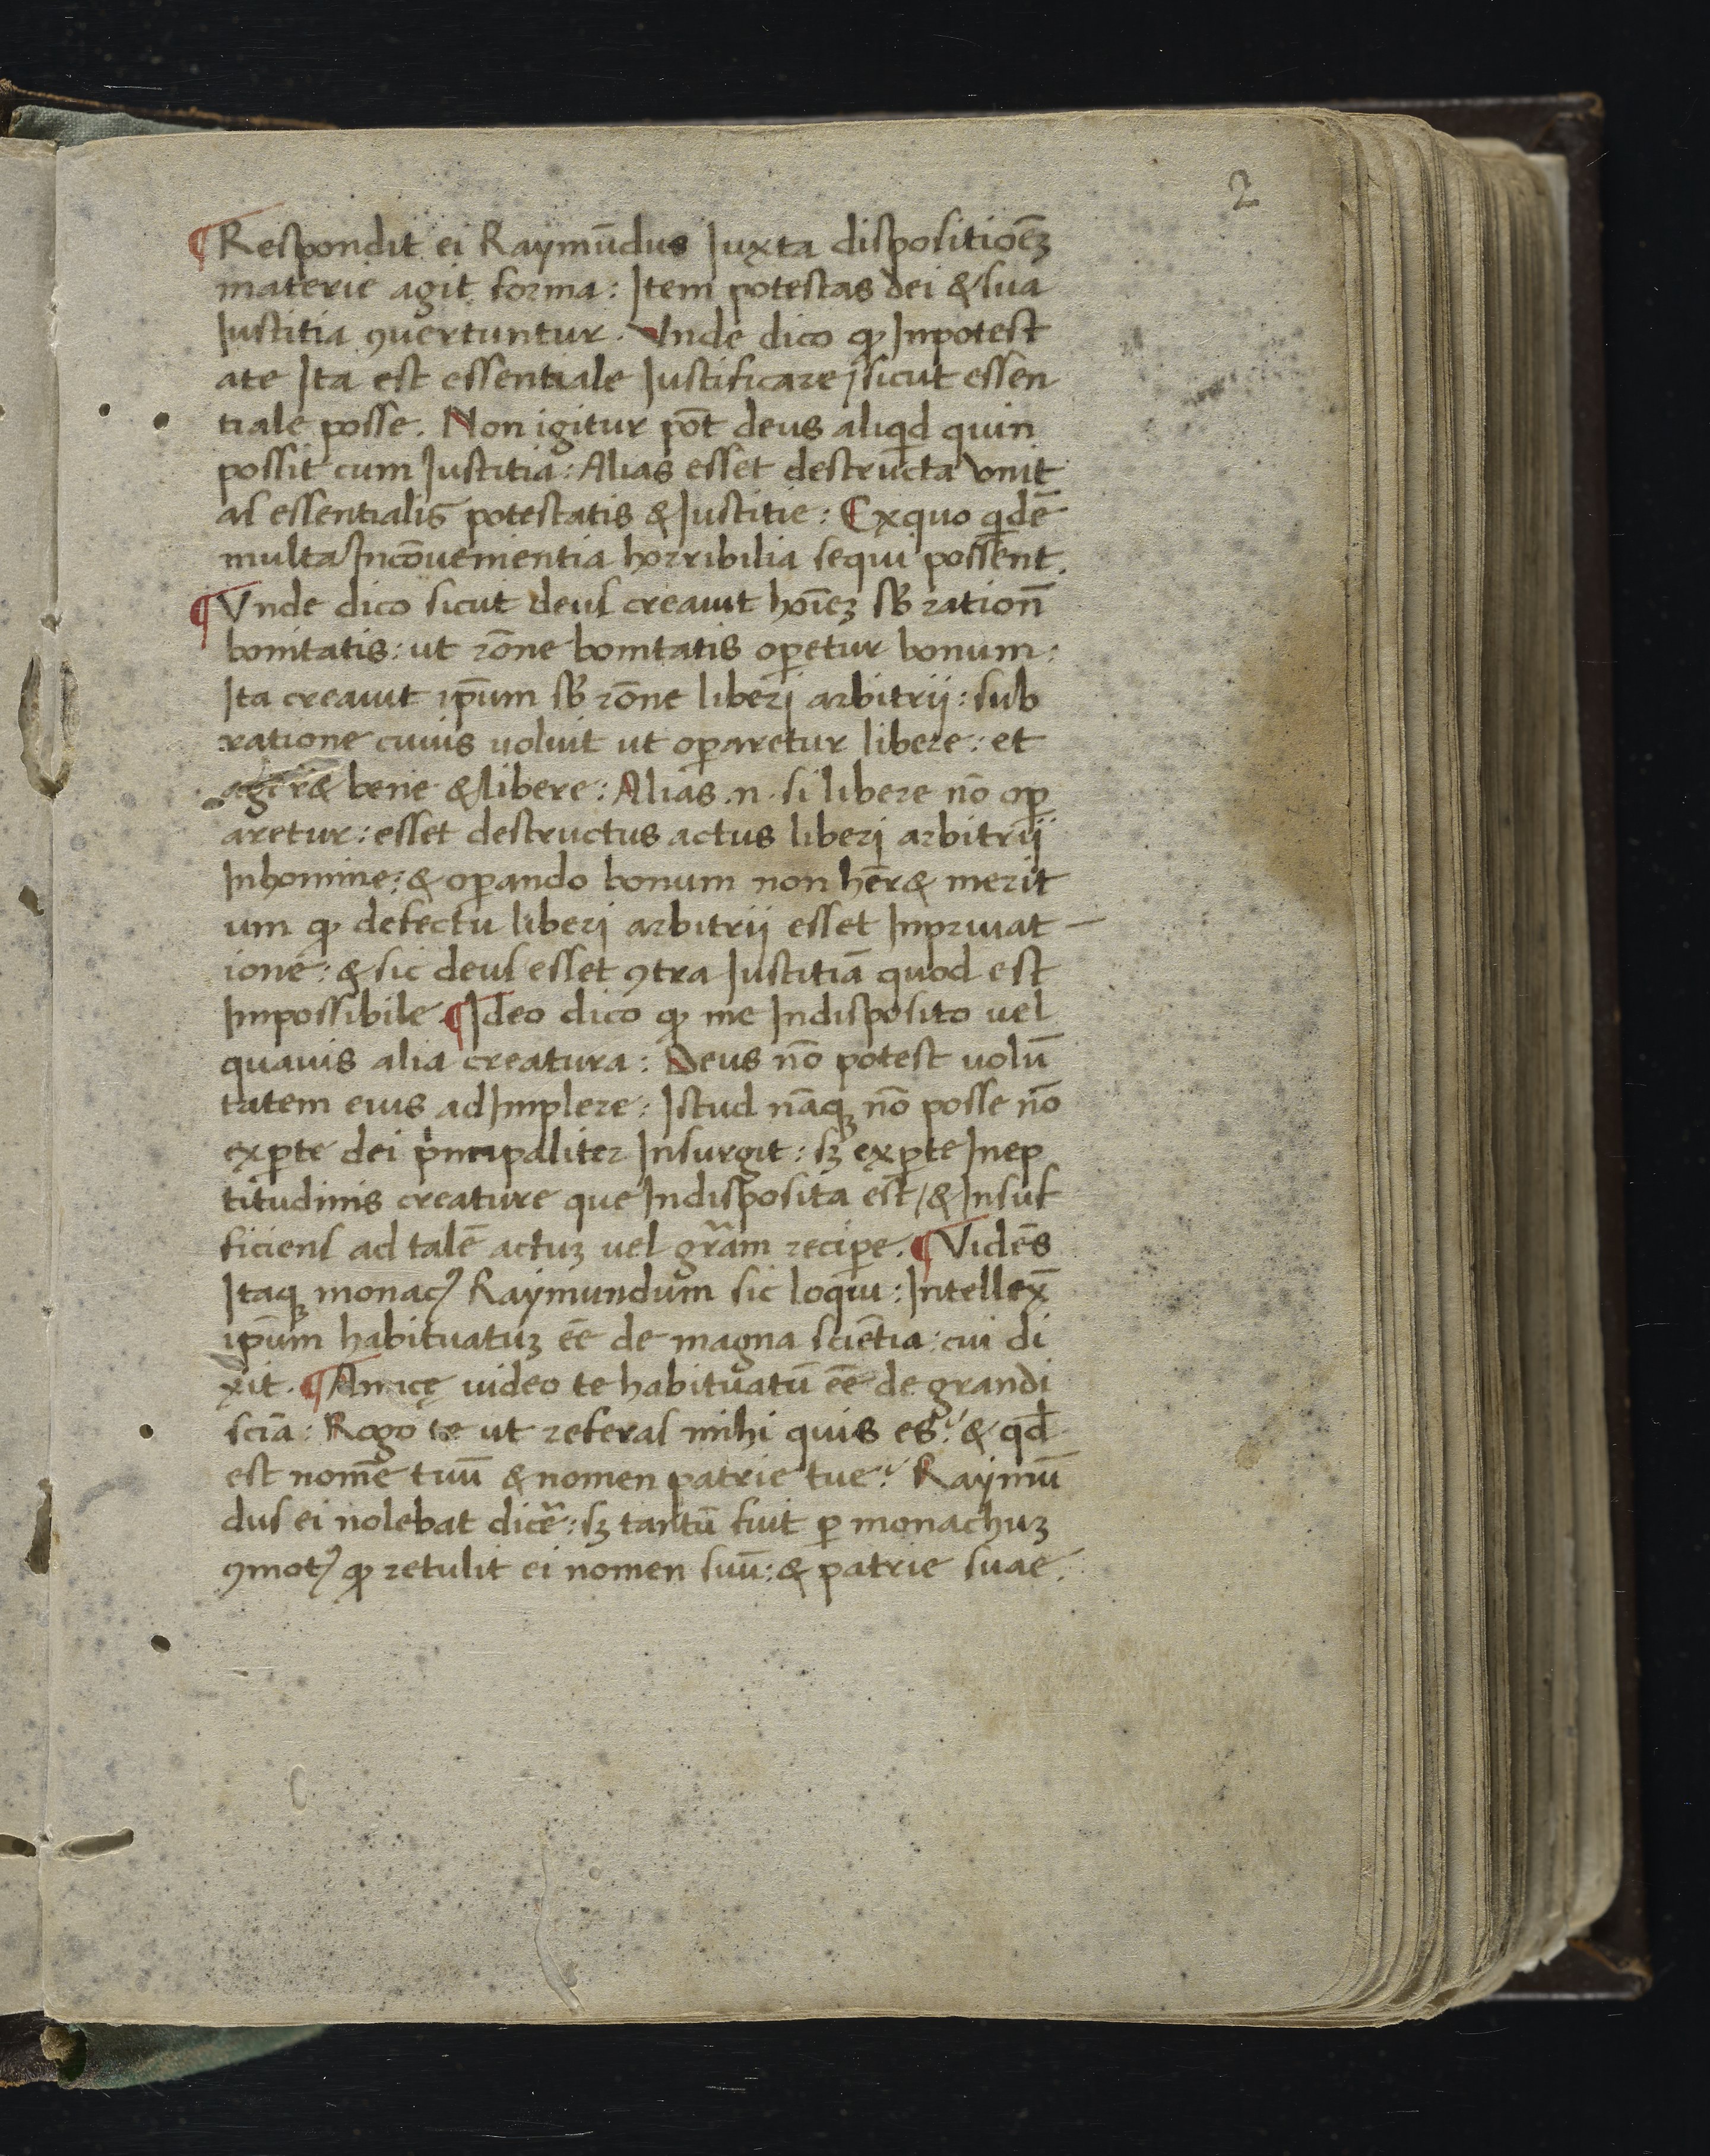 2
¶Respondit ei Raymūdus Iuxta dispositiōeꝫ
materie agit forma: Item potestas dei & sua
Iustitia ꝯuertuntur. Vnde dico ꝙ Inpotest
ate Ita est essentiale Iustificare / sicut essen
tiale posse. Non igitur pōt deus aliqͥd quin
possit cum Iustitia: Alias esset destructa vnit
as essentialis potestatis & Iustitie: Exquo qͥdē
multa Incōuenientia horribilia sequi possent.
¶Vnde dico sicut deus creauit hoīeꝫ sƀ rationē
bonitatis: ut rōne bonitatis oꝑetur bonum:
Ita creauit ip̄um sƀ rōne liberi arbitrij: sub
ratione cuius uoluit ut oꝑaretur libere: et
bene & libere: Alias .n. si libere nō oꝑ
aretur: esset destructus actus liberi arbitrij
Inhomine: & oꝑando bonum non hēr& merit
um ꝙ defectu liberi arbitrij esset Inpriuat —
ione: & sic deus esset ꝯtra Iustitiā quod est
Impossibile. ¶Ideo dico ꝙ me Indisposito uel
quauis alia creatura: Deus nō potest uolū
tatem eius adImplere: Istud nāqꝫ nō posse nō
exꝑte dei pͥncipaliter Insurgit: sꝫ exꝑte Inep
titudinis creature que Indisposita est / & Insuf
ficiens ad talē actuꝫ uel gr̄am reciꝑe. ¶Vidēs
Itaqꝫ monacꝰ Raymundum sic loqui: Intellex̄
ip̄um habituatuꝫ ēe de magna scientia: cui di
xit. ¶Amicę uideo te habituatū ēe de grandi
scīa: Rogo te ut referas mihi quis es? & qd
est nomē tuū & nomen patrie tue? Raymū
dus ei nolebat dicē: sꝫ tantū fuit ꝑ monachuꝫ
ꝯmotꝰ ꝙ retulit ei nomen suū: & patrie suae.